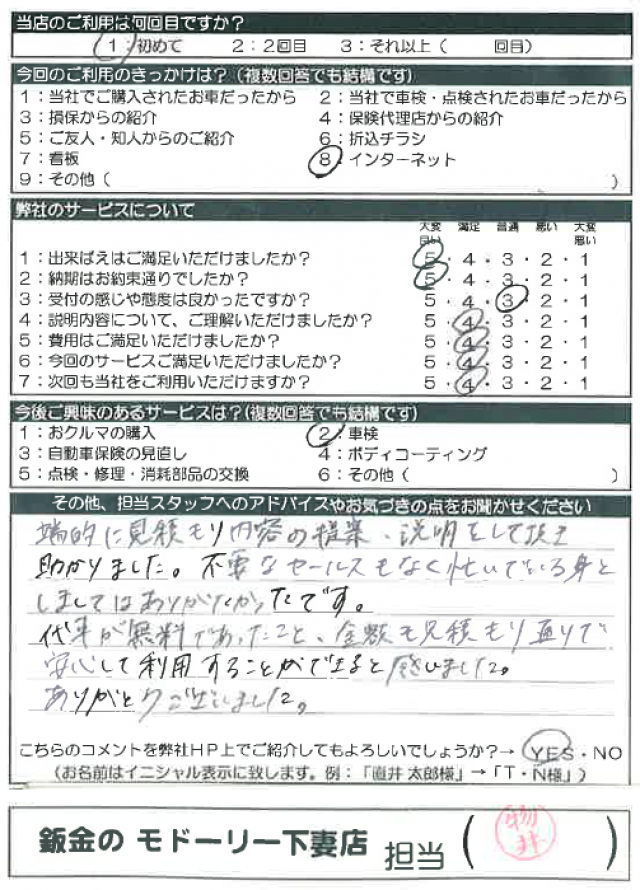 当店のご利用は何回目ですか？
1：初めて 2：2回目 3：それ以上（ 回目）
今回のご利用のきっかけは？（複数回答でも結構です）
1：当社でご購入されたお車だったから 2：当社で車検・点検されたお車だったから
3：損保からの紹介 4：保険代理店からの紹介
5：ご友人・知人からのご紹介 6：折込チラシ
7：看板 8：インターネット
9：その他（ ）
弊社のサービスについて
大変良い 満足 普通 悪い 大変悪い
1：出来ばえはご満足いただけましたか？ 5・4・3・2・1
2：納期はお約束通りでしたか？ 5・4・3・2・1
3：受付の感じや態度は良かったですか？ 5・4・3・2・1
4：説明内容について、ご理解いただけましたか？ 5・4・3・2・1
5：費用はご満足いただけましたか？ 5・4・3・2・1
6：今回のサービスご満足いただけましたか？ 5・4・3・2・1
7：次回も当社をご利用いただけますか？ 5・4・3・2・1
今後ご興味のあるサービスは？（複数回答でも結構です）
1：おクルマの購入 2：車検
3：自動車保険の見直し 4：ボディコーティング
5：点検・修理・消耗部品の交換 6：その他（ ）
その他、担当スタッフへのアドバイスやお気づきの点をお聞かせください
端的に見積もり内容の提案、説明をして頂き
助かりました。不要なセールスもなく忙いでいる身と
しましてはありがたかったです。
代車が無料であったこと、金額も見積もり通りで
安心して利用することができると感いました。
ありがとうございました。
こちらのコメントを弊社HP上でご紹介してもよろしいでしょうか？→ YES・NO
（お名前はイニシャル表示に致します。例：「直井 太郎様」→「T・N様」）
鈑金の モドーリー下妻店 担当（ ）